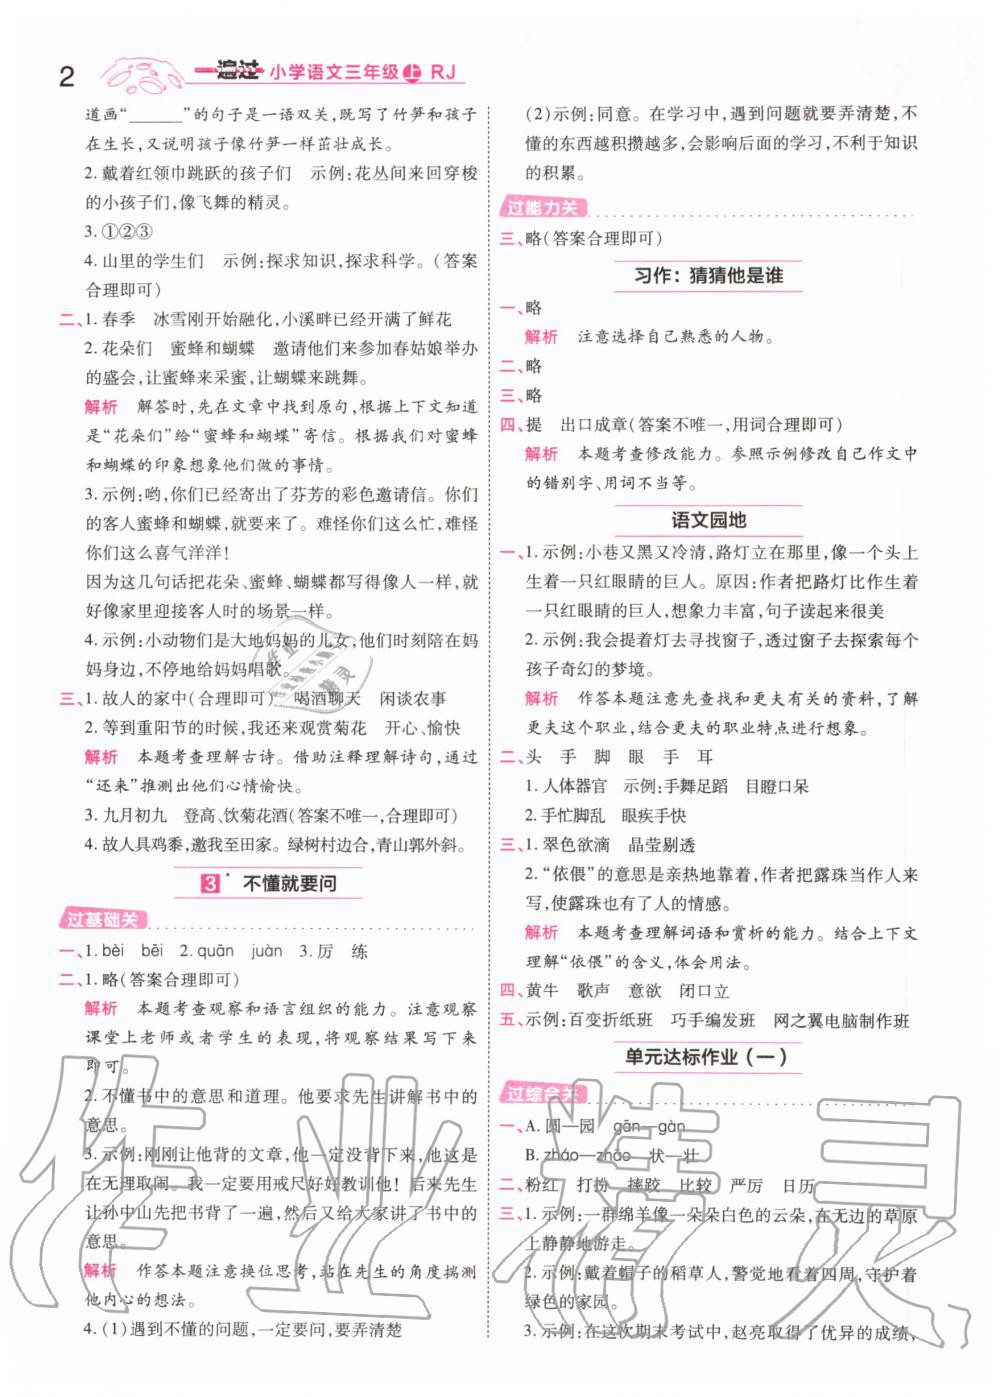 2
一遍过 小学语文三年级 上 RJ
道画“______”的句子是一语双关,既写了竹笋和孩子
在生长,又说明孩子像竹笋一样茁壮成长。
2. 戴着红领巾跳跃的孩子们 示例:花丛间来回穿梭
的小孩子们,像飞舞的精灵。
3. ①②③
4. 山里的学生们 示例:探求知识,探求科学。(答案
合理即可)
二、1. 春季 冰雪刚开始融化,小溪畔已经开满了鲜花
2. 花朵们 蜜蜂和蝴蝶 邀请他们来参加春姑娘举办
的盛会,让蜜蜂来采蜜,让蝴蝶来跳舞。
解析 解答时,先在文章中找到原句,根据上下文知道
是“花朵们”给“蜜蜂和蝴蝶”寄信。根据我们对蜜蜂
和蝴蝶的印象想象他们做的事情。
3. 示例:哟,你们已经寄出了芬芳的彩色邀请信。你们
的客人蜜蜂和蝴蝶,就要来了。难怪你们这么忙,难怪
你们这么喜气洋洋!
因为这几句话把花朵、蜜蜂、蝴蝶写得非常亲切,就
好像家里迎接客人时的场景一样。
4. 示例:小动物们是大地妈妈的儿女,他们时刻陪在妈
妈身边,不停地给妈妈唱歌。
三、1. 故人的家中(合理即可) 喝酒聊天 闲谈农事
2. 等到重阳节的时候,我还来观赏菊花 开心、愉快
解析 本题考查理解古诗。借助注释理解诗句,通过
“还来”推测出他们心情愉快。
3. 九月初九 登高、饮菊花酒(答案不唯一,合理即可)
4. 故人具鸡黍,邀我至田家。绿树村边合,青山郭外斜。
3* 不懂就要问
过基础关
一、1. bèi bēi 2. quān juàn 3. 厉 练
二、1. 略(答案合理即可)
解析 本题考查观察和语言组织的能力。注意观察
课堂上老师或者学生的表现,将观察结果写下来
即可。
2. 不懂书中的意思和道理。他要求先生讲解书中的
意思。
3. 示例:刚刚让他背的文章,他一定没背下来,这是
在无理取闹。我一定要用戒尺好好教训他! 后来先生
让孙中山先背了一遍,然后又给大家讲了书中的
意思。
解析 作答本题注意换位思考,站在先生的角度揣测
他内心的想法。
4. (1)遇到不懂的问题,一定要问,要弄清楚
(2)示例:同意。在学习中,遇到问题就要弄清楚,不
懂的东西越积攒越多,会影响后面的学习,不利于知识
的积累。
过能力关
三、略(答案合理即可)
习作:猜猜他是谁
一、略
解析 注意选择自己熟悉的人物。
二、略
三、略
四、提 出口成章(答案不唯一,用词合理即可)
解析 本题考查修改能力。参照示例修改自己作文中
的错别字、用词不当等。
语文园地
一、1. 示例:小巷又黑又冷清,路灯立在那里,像一个头上
生着一只红眼睛的巨人。原因:作者把路灯比作生着
一只红眼睛的巨人,想象力丰富,句子读起来很美
2. 示例:我会提着灯去寻找窗子,透过窗子去探索每个
孩子奇幻的梦境。
解析 作答本题注意先查找和更夫有关的资料,了解
更夫这个职业,结合更夫的职业特点进行想象。
二、头 手 脚 眼 手 耳
1. 人体器官 示例:手舞足蹈 目瞪口呆
2. 手忙脚乱 眼疾手快
三、1. 翠色欲滴 晶莹剔透
2. “依偎”的意思是亲热地靠着。作者把露珠当作人来
写,使露珠也有了人的情感。
解析 本题考查理解词语和赏析的能力。结合上下文
理解“依偎”的含义,体会用法。
四、黄牛 歌声 意欲 闭口立
五、示例:百变折纸班 巧手编发班 网之翼电脑制作班
单元达标作业(一)
过综合关
一、A. 圆—园 gān—gàn
B. zháo—zhāo 状—壮
二、粉红 打扮 摔跤 比较 严厉 日历
三、1. 示例:一群绵羊像一朵朵白色的云朵,在无边的草原
上静静地游走。
2. 示例:戴着帽子的稻草人,警觉地看着四周,守护着
绿色的家园。
3. 示例:在这次期末考试中,赵亮取得了优异的成绩,
作业精灵